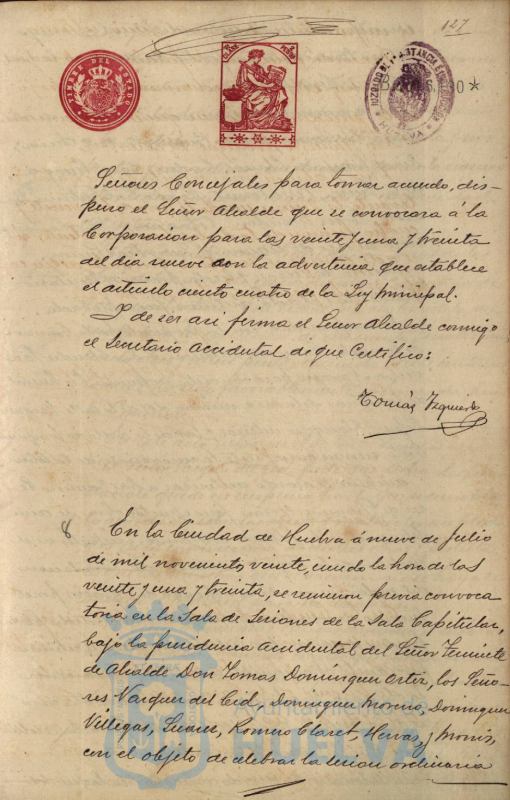 127
TIMBRE DEL ESTADO
Señores Concejales para tomar acuerdo, dis-
puso el Señor Alcalde que se convocara á la
Corporacion para las veinte y una y treinta
del dia nueve con la advertencia que establece
el articulo ciento cuatro de la Ley Municipal.
Y de ser asi firma el Señor Alcalde conmigo
el Secretario Accidental de que Certifico:
Tomás Izquierdo
8 En la Ciudad de Huelva á nueve de Julio
de mil novecientos veinte, siendo la hora de las
veinte y una y treinta, se reunieron previa convoca
toria en la Sala de Sesiones de la Sala Capitular,
bajo la presidencia Accidental del Señor Teniente
de Alcalde Don Tomas Dominguez Ortiz, los Seño-
res Vazquez del Cid, Dominguez Moreno, Dominguez
Villegas, Suarez, Romero Claret, Hervas, y Monis,
con el objeto de celebrar la sesion ordinaria
Ayuntamiento de
HUELVA